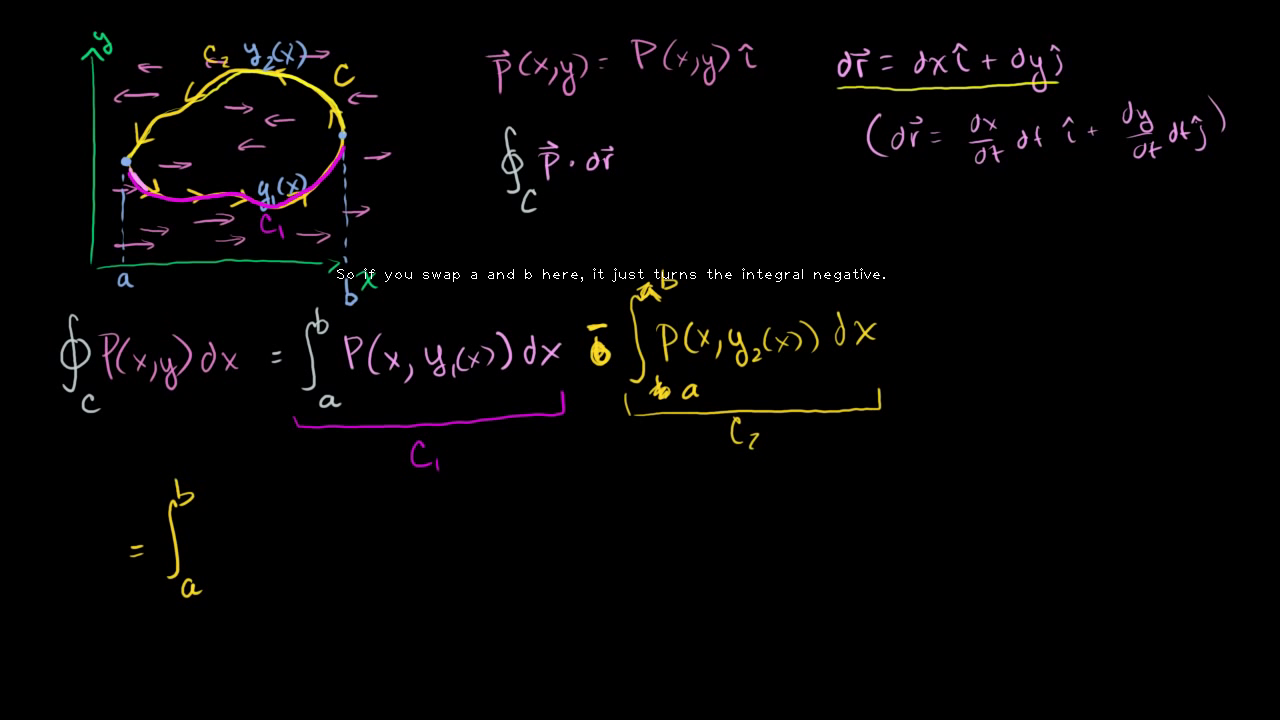 y
C₂ y₂(x)
C
y₁(x)
C₁
a
b
x
p⃗(x,y) = P(x,y) î
∮ p⃗ · dr⃗
C
dr⃗ = dx î + dy ĵ
(dr⃗ = dx/dt dt î + dy/dt dt ĵ)
So if you swap a and b here, it just turns the integral negative.
∮_C P(x,y) dx = ∫_a^b P(x, y₁(x)) dx - ∫_a^b P(x, y₂(x)) dx
C₁
C₂
= ∫_a^b